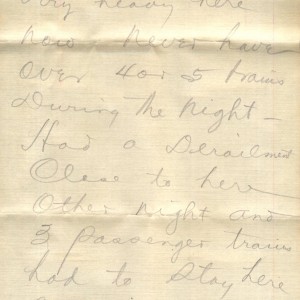 very heavy here
now never have
Over 4 or 5 trains
During the Night -
Had a Derailment
Close to here
Other Night and
3 passenger trains
had to Stay here